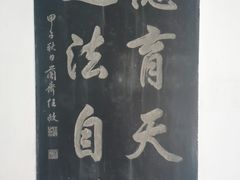 育天
法自
甲子秋日蘭齋任政